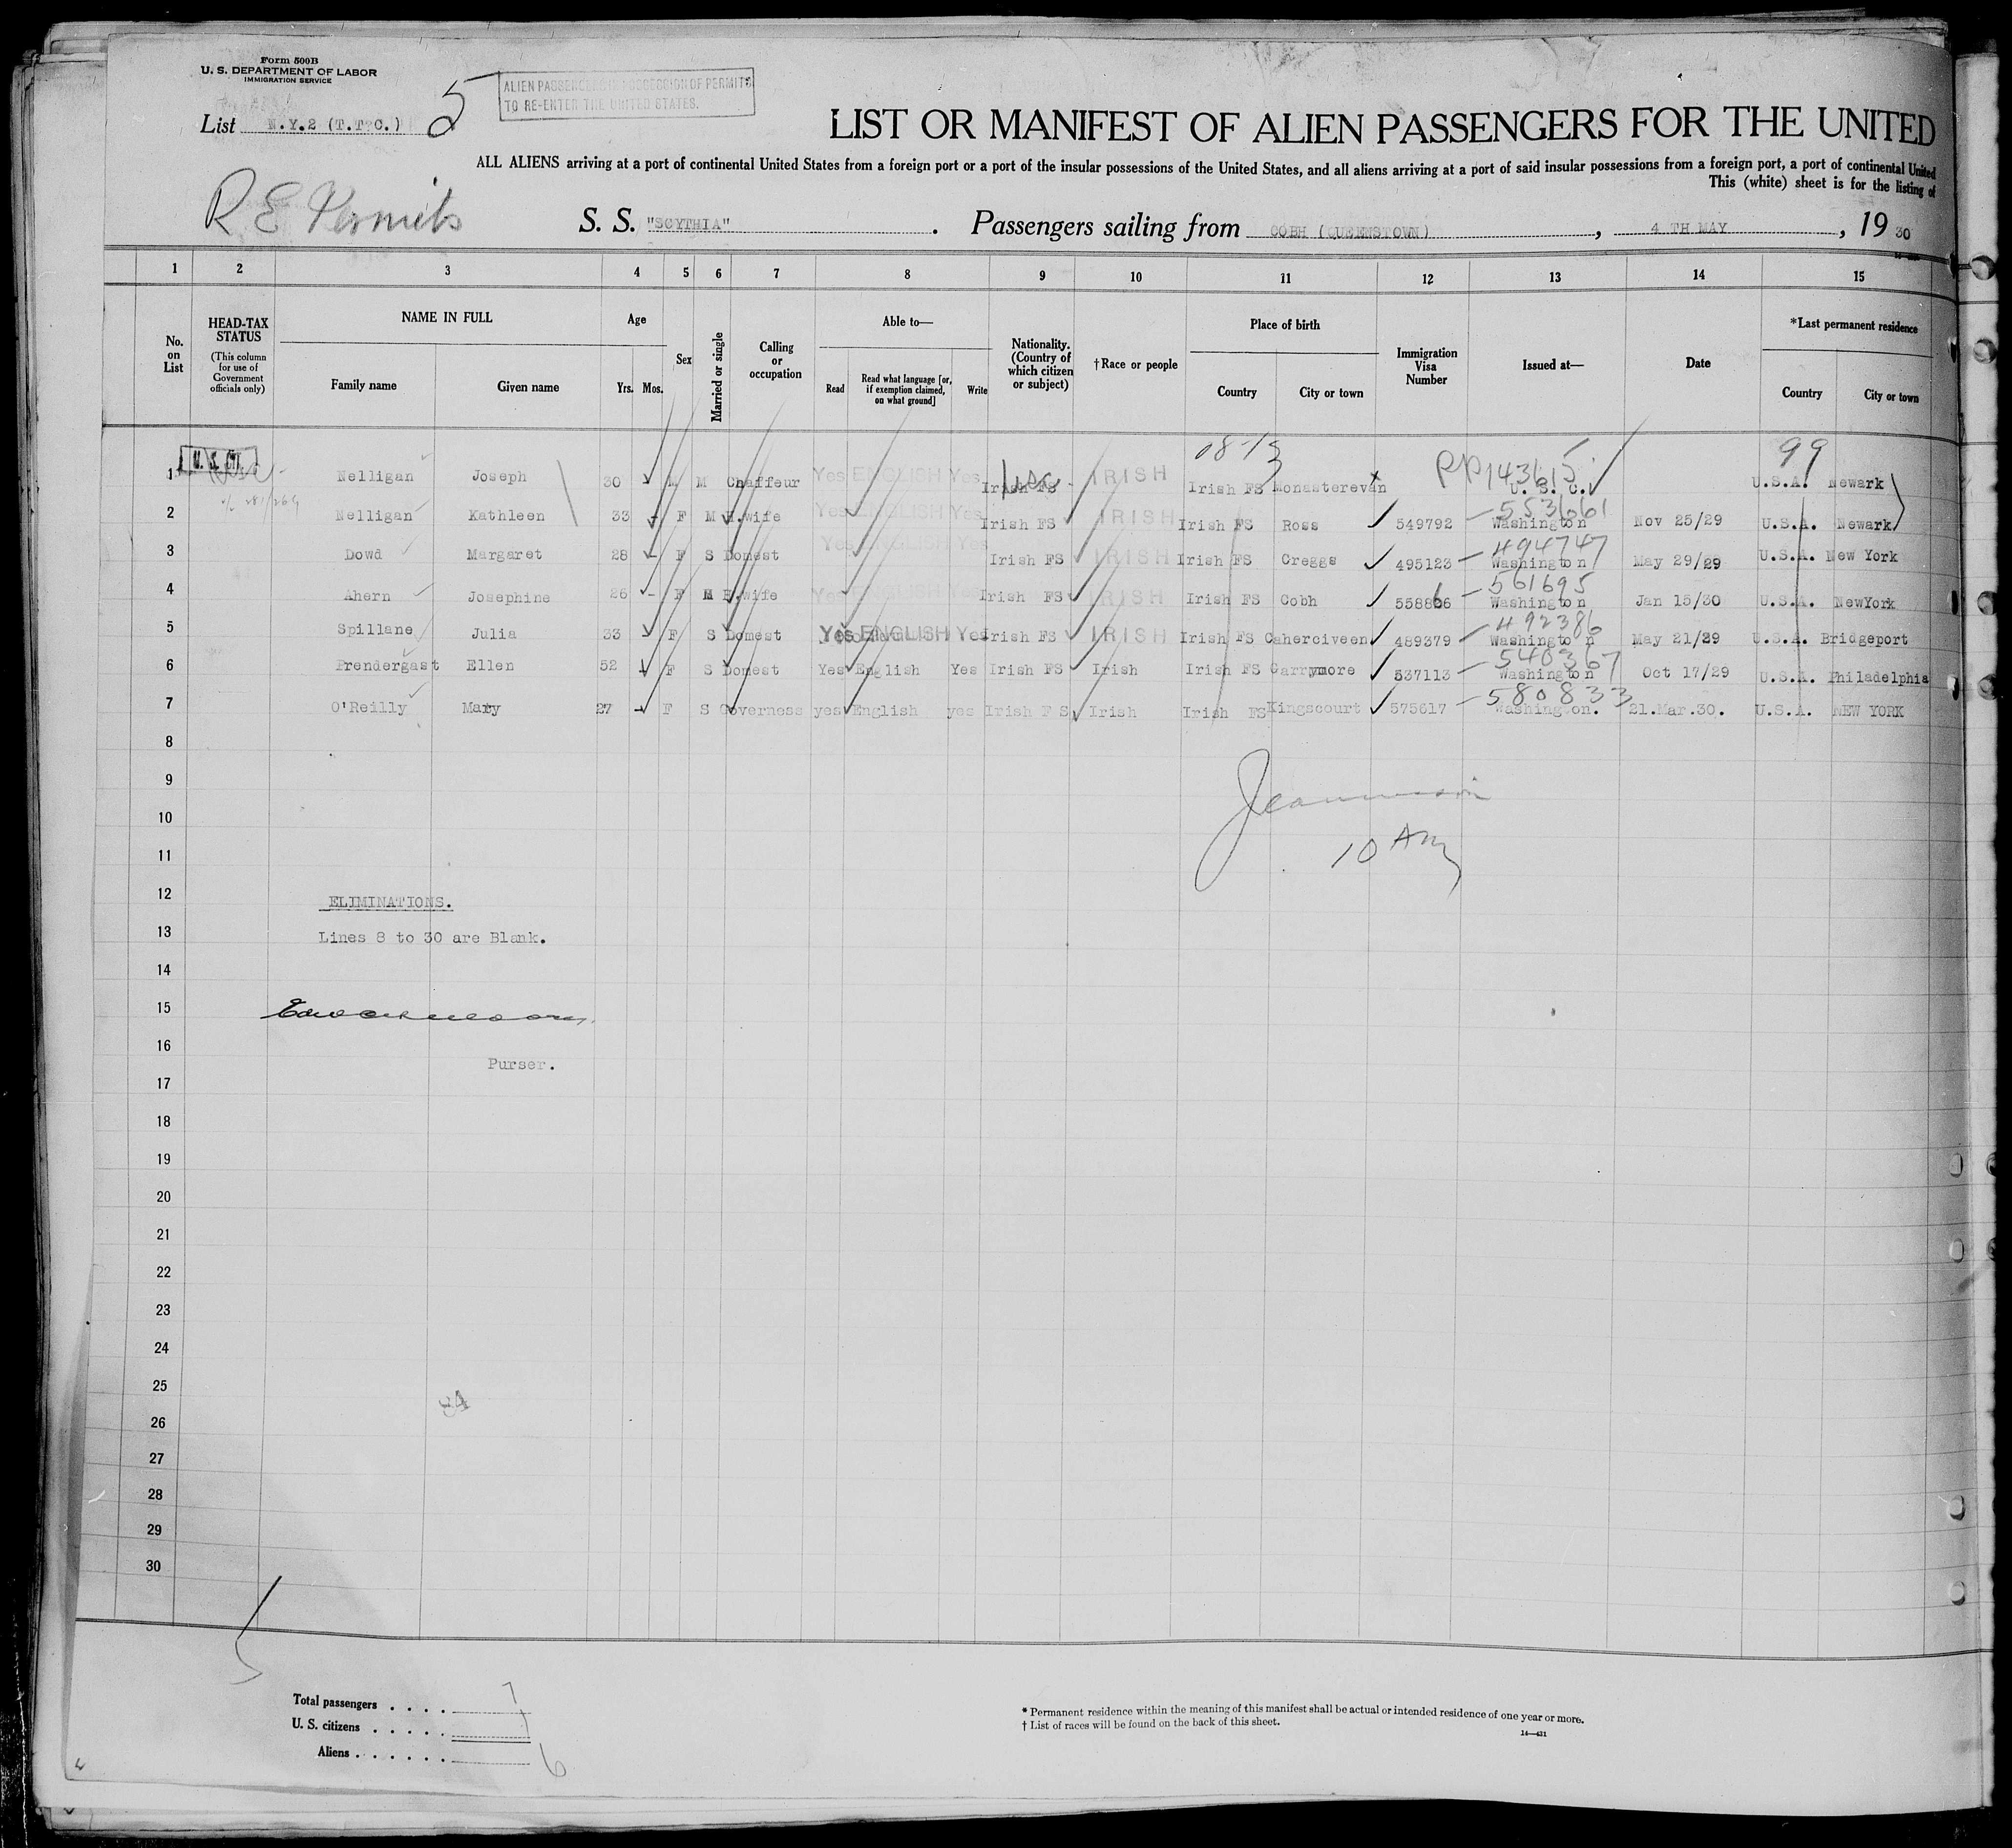 Form 500B
U. S. DEPARTMENT OF LABOR
IMMIGRATION SERVICE
ALIEN PASSENGERS IN POSSESSION OF PERMITS
TO RE-ENTER THE UNITED STATES.
List N.Y.2 (T.T.C.) 5
LIST OR MANIFEST OF ALIEN PASSENGERS FOR THE UNITED
ALL ALIENS arriving at a port of continental United States from a foreign port or a port of the insular possessions of the United States, and all aliens arriving at a port of said insular possessions from a foreign port, a port of continental United
This (white) sheet is for the listing of
R E Permits
S. S. "SCYTHIA" . Passengers sailing from COBH (QUEENSTOWN) , 4 TH MAY , 19 30
1 2 3 4 5 6 7 8 9 10 11 12 13 14 15
No. on List
HEAD-TAX STATUS (This column for use of Government officials only)
NAME IN FULL Family name Given name
Age Yrs. Mos.
Sex
Married or single
Calling or occupation
Able to— Read Read what language [or, if exemption claimed, on what ground] Write
Nationality. (Country of which citizen or subject)
†Race or people
Place of birth Country City or town
Immigration Visa Number
Issued at—
Date
*Last permanent residence Country City or town
08-13 99
1 U.S.C. Nelligan Joseph 30 M M Chaffeur Yes ENGLISH Yes Irish FS USC IRISH Irish FS Monasterevan PP143615 U. S. C. U.S.A. Newark
2 Nelligan Kathleen 33 - F M H.wife Yes ENGLISH Yes Irish FS IRISH Irish FS Ross 549792 - 553661 Washington Nov 25/29 U.S.A. Newark
3 Dowd Margaret 28 - F S Domest Yes ENGLISH Yes Irish FS IRISH Irish FS Creggs 495123 - 494747 Washington May 29/29 U.S.A. New York
4 Ahern Josephine 26 - F M H.wife Yes ENGLISH Yes Irish FS IRISH Irish FS Cobh 558866 - 561695 Washington Jan 15/30 U.S.A. NewYork
5 Spillane Julia 33 F S Domest Yes ENGLISH Yes Irish FS IRISH Irish FS Caherciveen 489379 - 492386 Washington May 21/29 U.S.A. Bridgeport
6 Prendergast Ellen 52 F S Domest Yes English Yes Irish FS Irish Irish FS Garrymore 537113 - 540367 Washington Oct 17/29 U.S.A. Philadelphia
7 O'Reilly Mary 27 - F S Governess yes English yes Irish F S Irish Irish FS Kingscourt 575617 - 580833 Washington. 21.Mar.30. U.S.A. NEW YORK
8
9
10
11 10 Am
12 ELIMINATIONS.
13 Lines 8 to 30 are Blank.
14
15
16 Purser.
17
18
19
20
21
22
23
24
25
26
27
28
29
30
Total passengers . . . . 7
U. S. citizens . . . . . 1
Aliens . . . . . . 6
* Permanent residence within the meaning of this manifest shall be actual or intended residence of one year or more.
† List of races will be found on the back of this sheet.
14—431